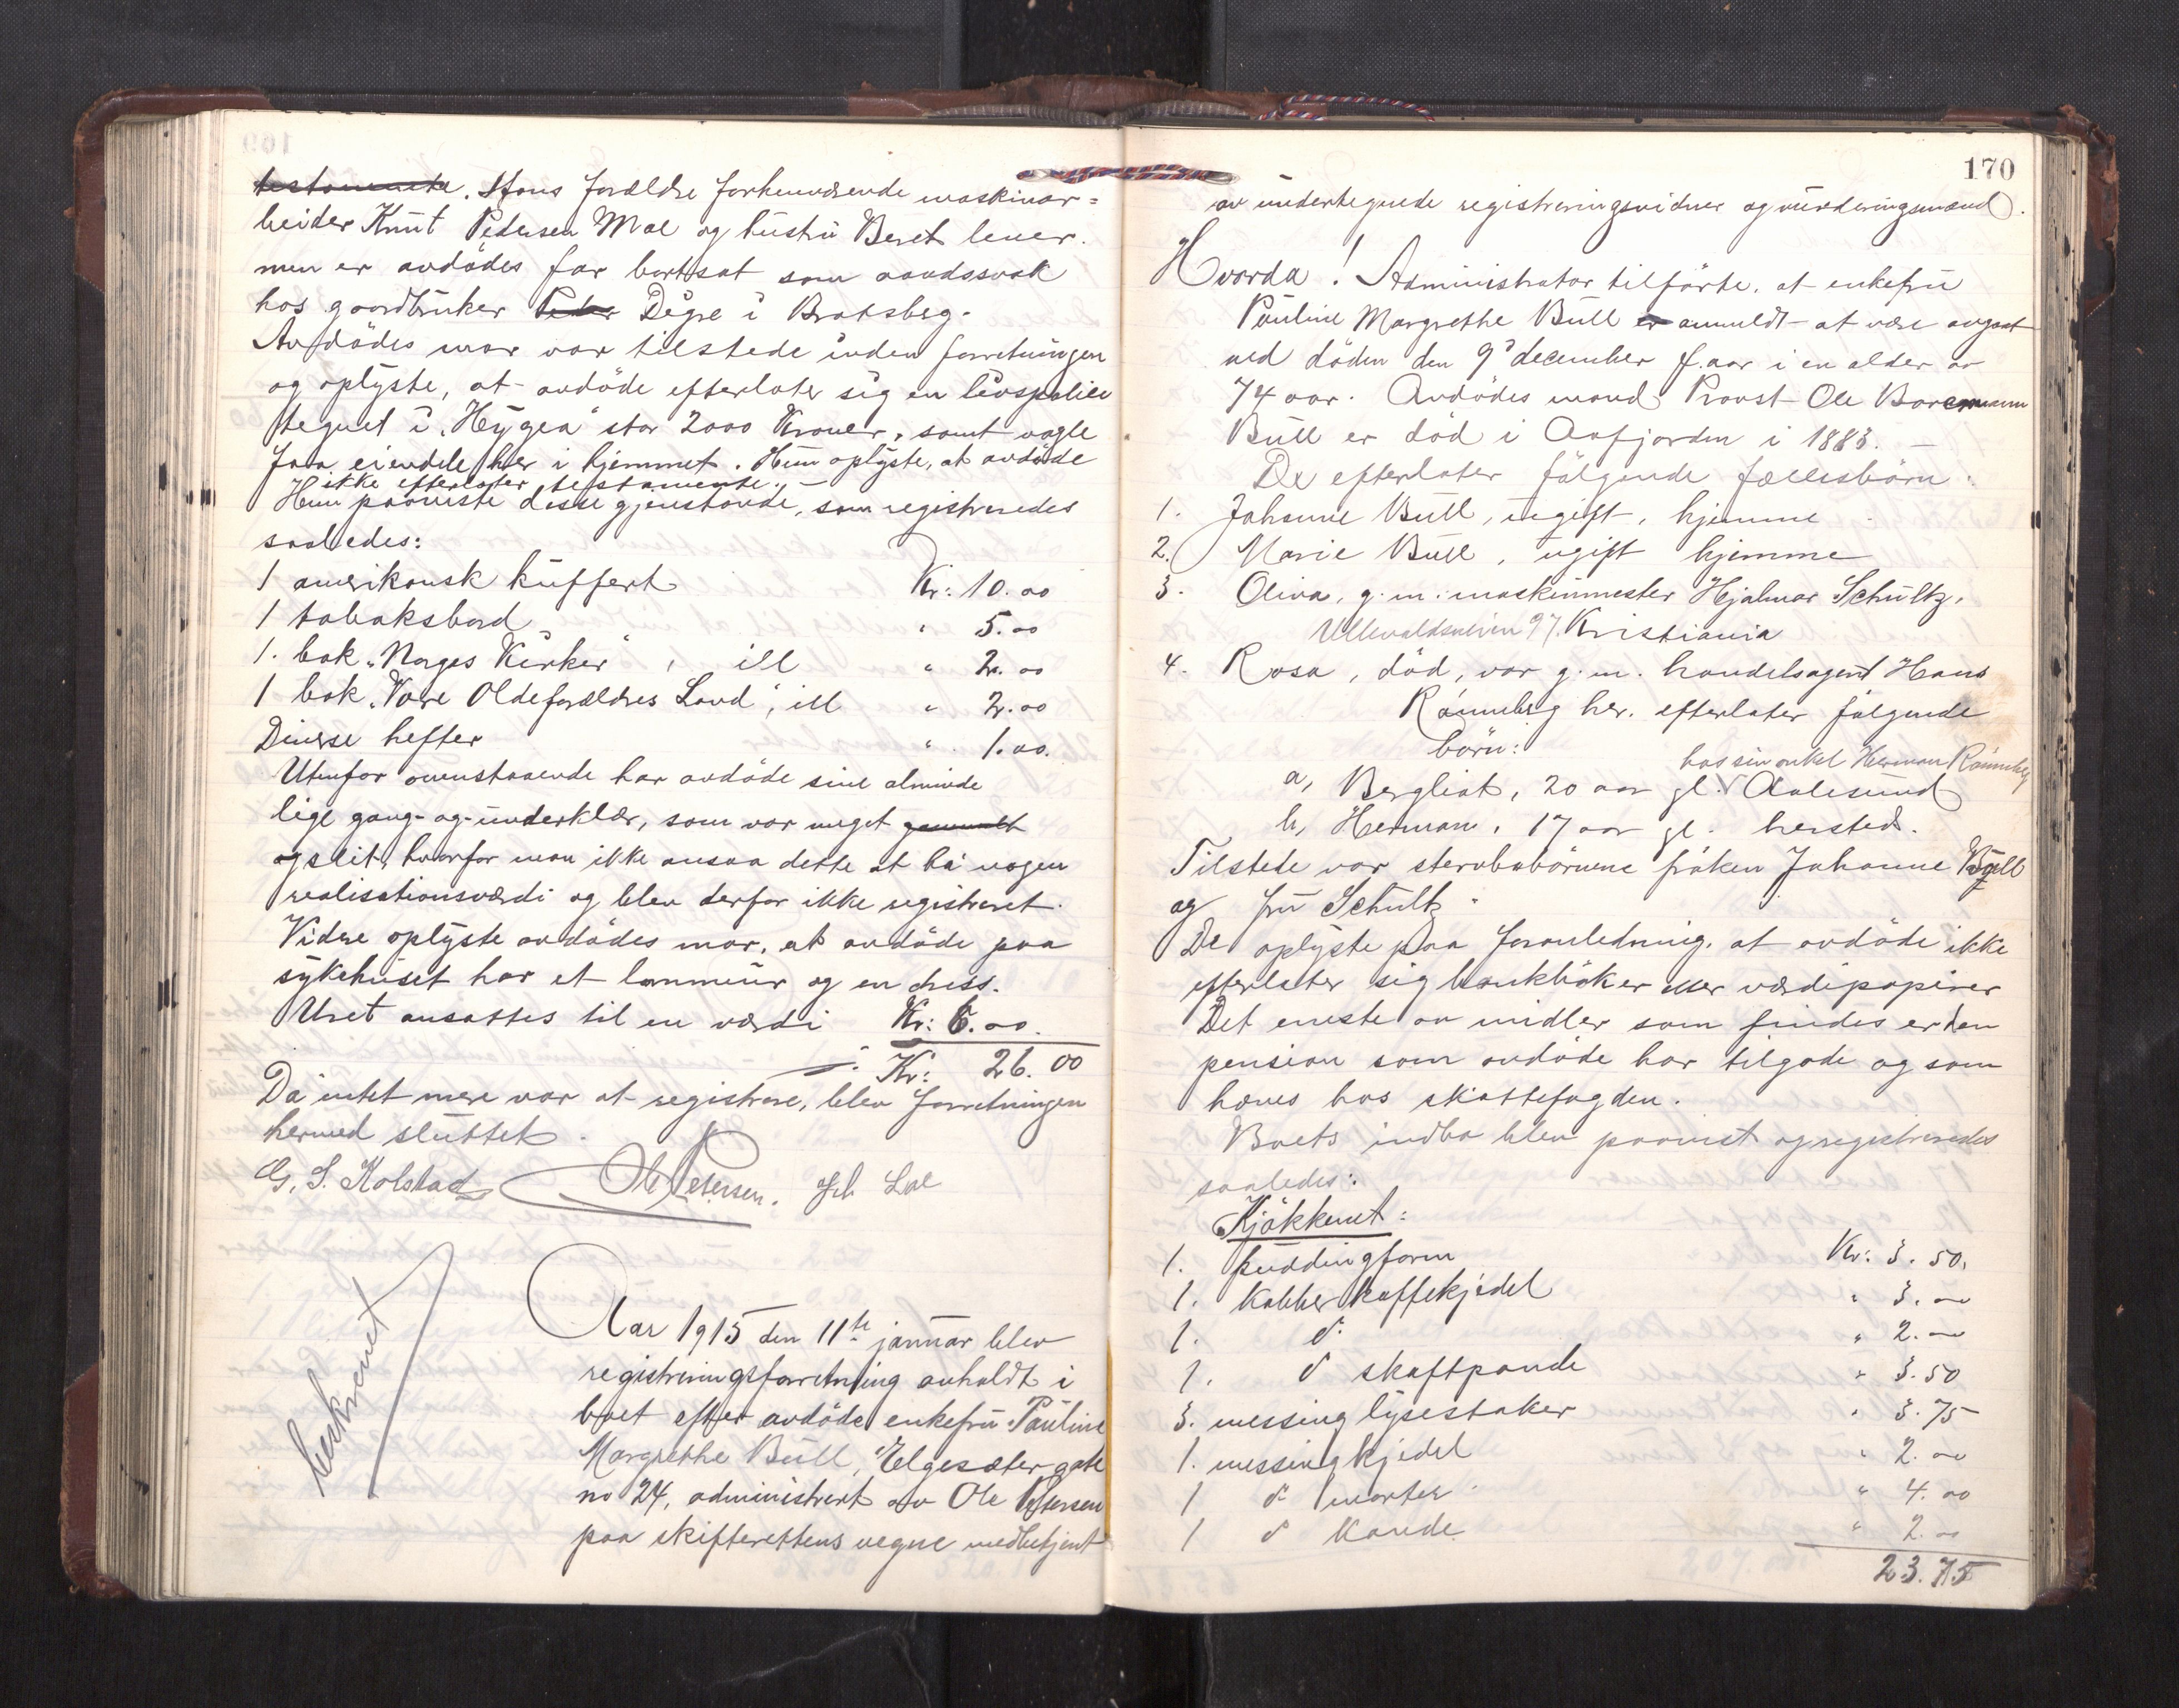 testamente. Hans forældre forhenværende maskinar=
beider Knut Pedersen Moe og hustru Beret lever.
men er avdödes far bortsat som aandssvak
hos gaardbruker Peder Digre i Bratsberg.
Avdödes mor var tilstede under forretningen
og oplyste, at avdöde efterlater sig en livspolice
tegnet i "Hygea" stor 2000 Kroner, samt nogle
faa eiendele her i hjemmet. Hun oplyste, at avdöde
ikke efterlater testamente. –
Hun paaviste disse gjenstande, som registreredes
saaledes:
1 amerikansk kuffert Kr: 10.00
1 tobaksbord " 5.00
1. bok "Norges Kirker", ill " 2.00
1 bok "Vore Oldeforældres Land", ill " 2.00
Diverse hefter " 1.00.
Utenfor ovenstaaende har avdöde sine alminde
lige gang- og underklær, som var meget gammelt
og slit, hvorfor man ikke ansaa dette at ha nogen
realisationsværdi og blev derfor ikke registreret.
Videre oplyste avdödes mor, at avdöde paa
sykehuset har et lommeur og en dress.
Uret ansattes til en værdi Kr: 6.00.
Kr: 26.00
Da intet mere var at registrere, blev forretningen
hermed sluttet.
G. S. Kolstad Ole Petersen. Joh Loe
beskrevet
Aar 1915 den 11te januar blev
registreringsforretning avholdt i
boet efter avdöde enkefru Pauline
Margrethe Bull, Elgesæter gate
no 24, administrert av Ole Petersen
paa skifterettens vegne medbetjent
170
av undertegnede registreringsvidner og vurderingsmænd.
Hvorda! Administrator tilförte, at enkefru
Pauline Margrethe Bull er anmeldt at være avgaat
ved döden den 9' december f. aar i en alder av
74 aar. Avdödes mand Provst Ole Bornemann
Bull er död i Aafjorden i 1883. –
De efterlater fölgende fællesbörn:
1. Johanne Bull, ugift, hjemme
2. Marie Bull, ugift hjemme
3. Oliva, g. m. maskinmester Hjalmar Schultz,
Ullevaldsveien 97 Kristiania
4. Rosa, död, var g. m. handelsagent Hans
Rönneberg her. efterlater fölgende
börn:
hos sin onkel Herman Rönneberg
a, Bergliot, 20 aar gl. Aalesund
b, Herman, 17 aar gl. hersteds.
Tilstede var stervbobörnene fröken Johanne Bull
og fru Schultz.
De oplyste paa foranledning, at avdöde ikke
efterlater sig bankböker eller værdipapirer
Det eneste av midler som findes er den
pension som avdöde har tilgode og som
hæves hos skattefogden.
Boets indbo blev paavist og registreredes
saaledes:
Kjökkenet:
1. puddingform Kr: 3.50.
1. kobber kaffekjedel " 3.00
1. do " 2.00
1. do skaftpande " 3.50
3. messing lysestaker " 3.75
1. messingkjedel " 2.00
1 do morter " 4.00
1 do kande " 2.00
23.75